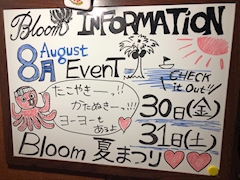 Bloom INFORMATION
August
8月 EvenT
CHECK
it Out!!
たこやきーっ!!
かたぬきーっ!!
ヨーヨーも
あるよ
30日(金)
31日(土)
Bloom 夏まつり